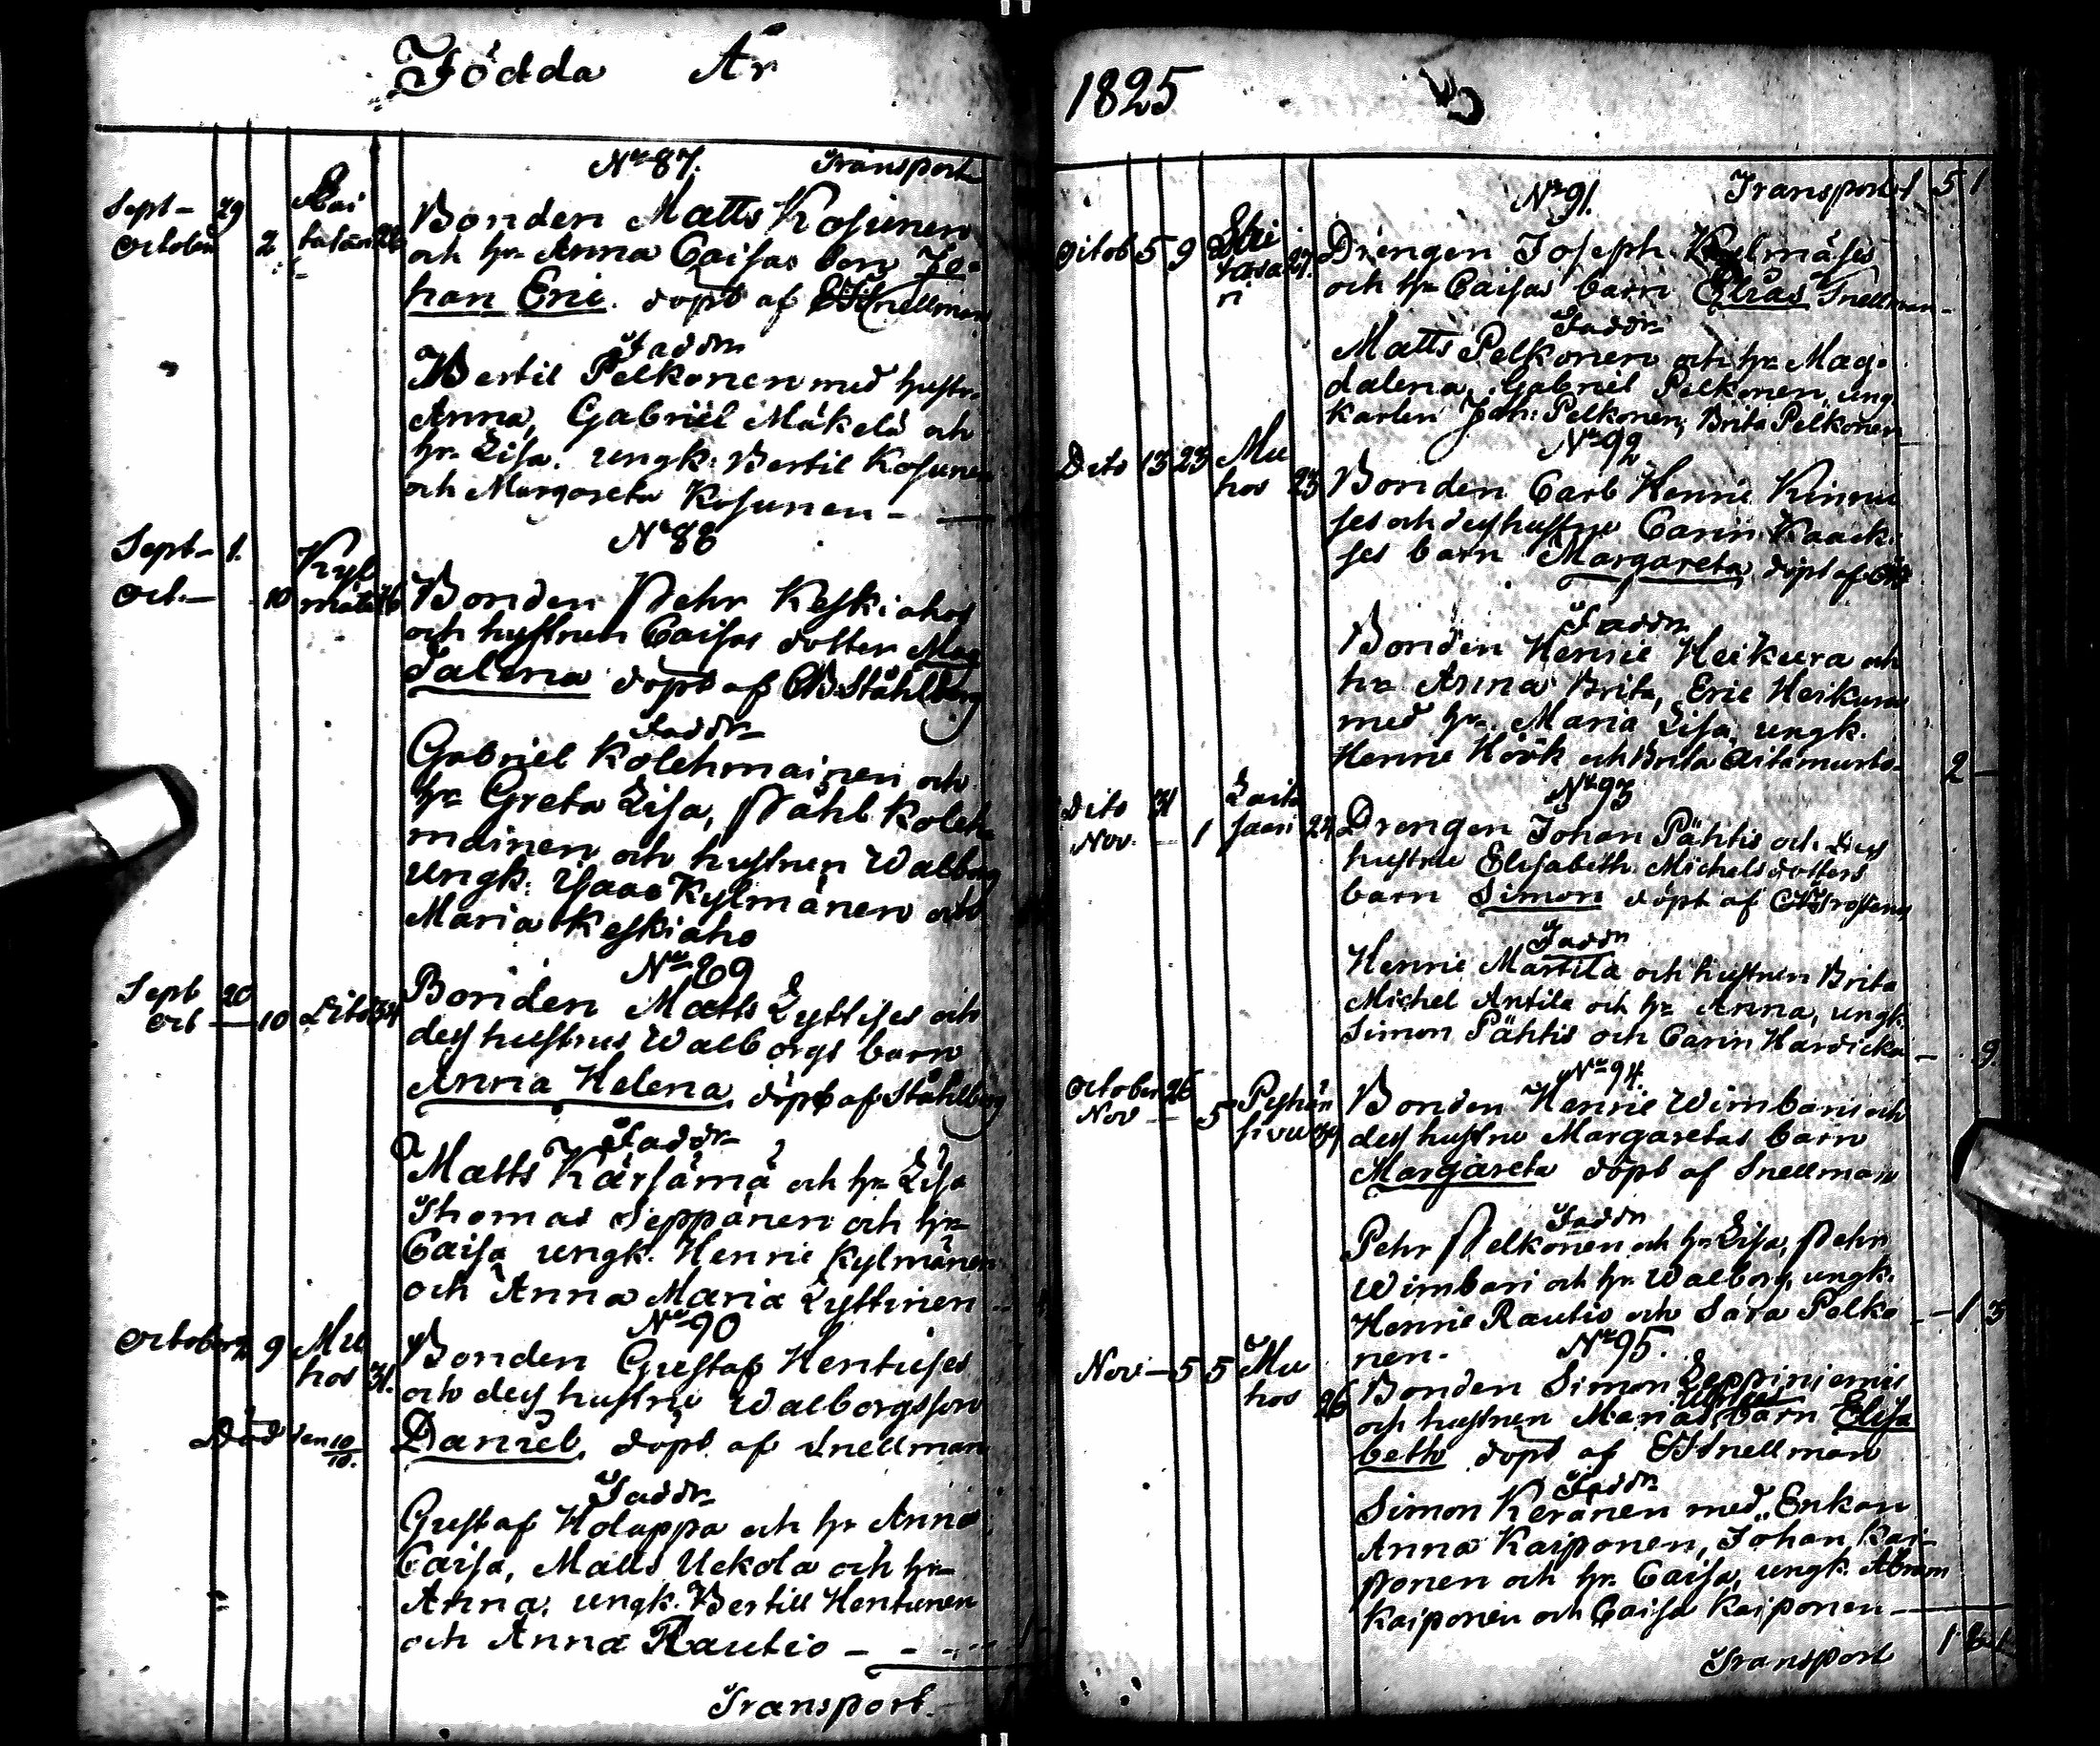 Födda År
Nº 87. Transport
Sept- 29 Bonden Matts Kosunen
October 2 och hr Anna Caisas barn Jo-
han Eric. döpt af Snellman
Faddr
Bertil Pelkonen med hustr.
Anna, Gabriel Mäkelä och
hr Lisa. ungk: Bertil Kosunen
och Margareta Kosunen -
Nº 88
Sept- 1.
Oct.- 10 Bonden Pehr Keskiahos
och hustrun Caisas dotter Mag
dalena döpt af Ståhlberg
Faddr
Gabriel Kolehmainen och
hr Greta Lisa, Påhl Koleh
mainen och hustrun Walborg
ungk: Isaac Kylmänen och
Maria Keskiaho
Nº 89
Sept 20 Bonden Matts Lyttises och
Oct - 10 Dito 34 dess hustrus Walborgs barn
Anna Helena, döpt af Ståhlberg
Faddr
Matts Kärsämä och hr Lisa
Thomas Seppänen och hr
Caisa ungk. Henric Kylmänen
och Anna Maria Lyttinen
Nº 90
October 9 Mu Bonden Gustaf Hentuses
hos 31. och dess hustru Walborgs son
Död den 10/10. Daniel, döpt af Snellman
Faddr
Gustaf Holappa och hr Anna
Caisa, Matts Uckola och hr
Anna, ungk. Bertill Hentunen
och Anna Rautio - - -
Transport.
1825
Nº 91. Transport 1 5 1
Octob 5 9 27. Drengen Joseph Kylmäses
och hr Caisas barn Elias Snellman-
Faddr
Matts Pelkonen och hr Mag-
dalena, Gabriel Pelkonen, ung
karlen Joh: Pelkonen, Brita Pelkonen
Nº 92
Dito 13 23 Mu
hos 23 Bonden Carl Henric Kinnu
ses och dess hustru Carin Kaack-
ses barn Margareta, döpt af
Faddr
Bonden Henric Heikura och
hr Anna Brita, Eric Heikura
med hr. Maria Lisa, ungk.
Henric Höök och Brita Aitamurto- 2 -
Nº 93
Dito 31 Drengen Johan Pähtis och dess
Nov. - 1 24 hustru Elisabeth Michelsdotters
barn Simon döpt af
Faddr
Henric Martila och hustrun Brita
Michel Antila och hr Anna, ungk.
Simon Pähtis och Carin Hardicka - 9.
Nº 94.
October 26 Bonden Henric Wimbaris och
Nov - 5 dess hustru Margaretas barn
Margareta döpt af Snellman
Faddr
Pehr Pelkonen och hr Lisa, Pehr
Wimbari och hr Walborg, ungk.
Henric Rautio och Sara Pelko - 1 3
nen.
Nº 95.
Nov - 5 5 Mu Bonden Simon Leppiniemis
hos 26 och hustrun Marias barn Elisa
beth döpt af Snellman
Faddr
Simon Keränen med Enkan
Anna Kaiponen, Johan Kai-
ponen och hr. Caisa, ungk. Abram
Kaiponen och Caisa Kaiponen -
Transport